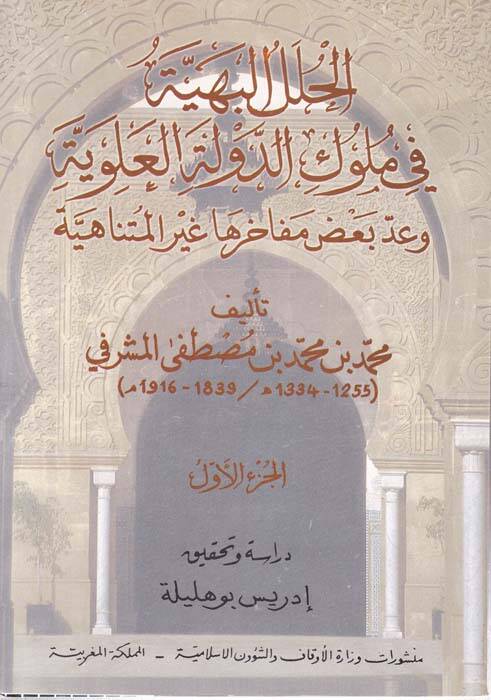 الحُلَلُ البَهِيَّة
فِي مُلُوكِ الدَّوْلَةِ العَلَوِيَّةِ
وَعَدّ بَعْضِ مَفَاخِرِهَا غَيْرِ المُتَنَاهِيَّة
تأليف
محمّد بن محمّد بن مُصْطَفَى المشرفي
(1255 - 1334 هـ / 1839 - 1916 م)
الجُزْء الأوَّلُ
دراسة وتحقيق
إدريس بوهليلة
منشورات وزارة الأوقاف والشؤون الإسلامية - المملكة المغربية